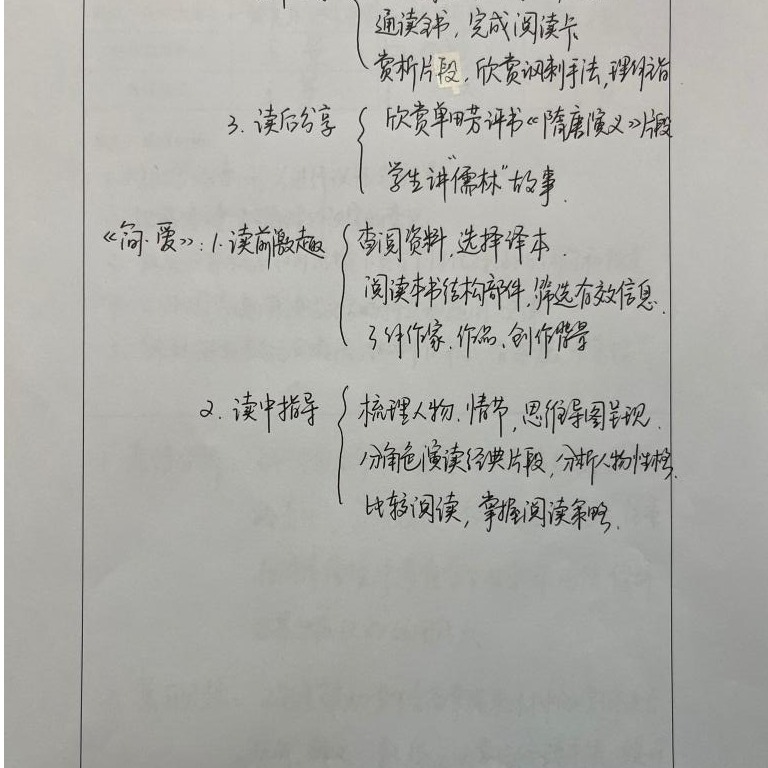 通读全书，完成阅读卡
赏析片段，欣赏讽刺手法，理解语
3. 读后分享
欣赏单田芳评书《隋唐演义》片段
学生讲"儒林"故事.
《简·爱》：1. 读前激趣
查阅资料，选择译本.
阅读本书结构部件，筛选有效信息.
了解作家、作品、创作背景
2. 读中指导
梳理人物、情节，思维导图呈现.
分角色演读经典片段，分析人物性格.
比较阅读，掌握阅读策略.